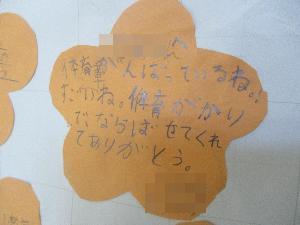 へ
体育がんばっているね。
だいのね。体育ががり
でならばせてくれ
てありがとう。